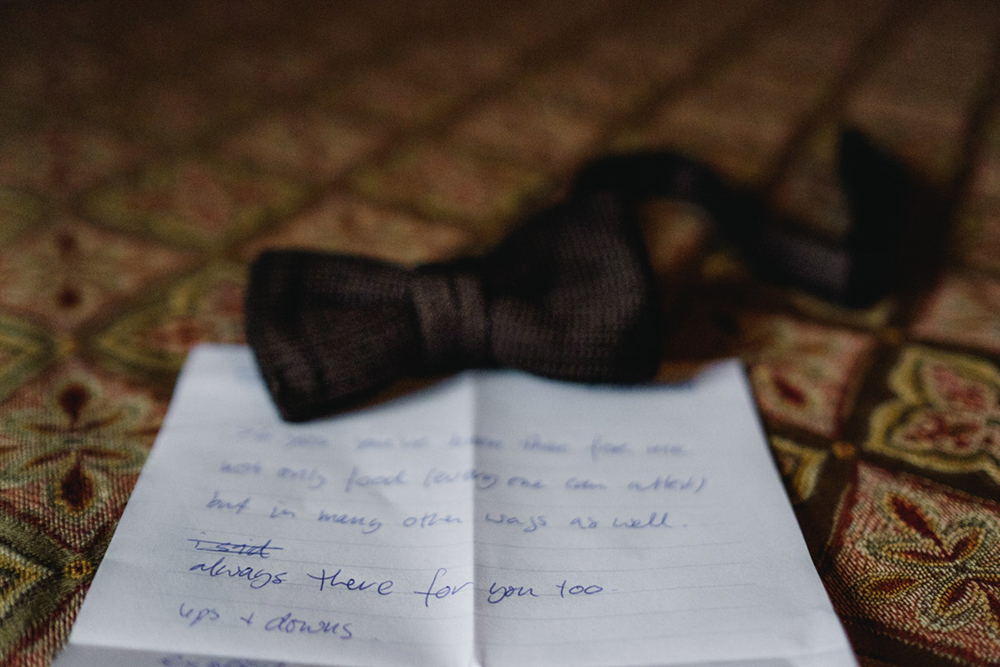 you've been there for me
not only food (everyone can attest)
but in many other ways as well.
I said
always there for you too
ups + downs